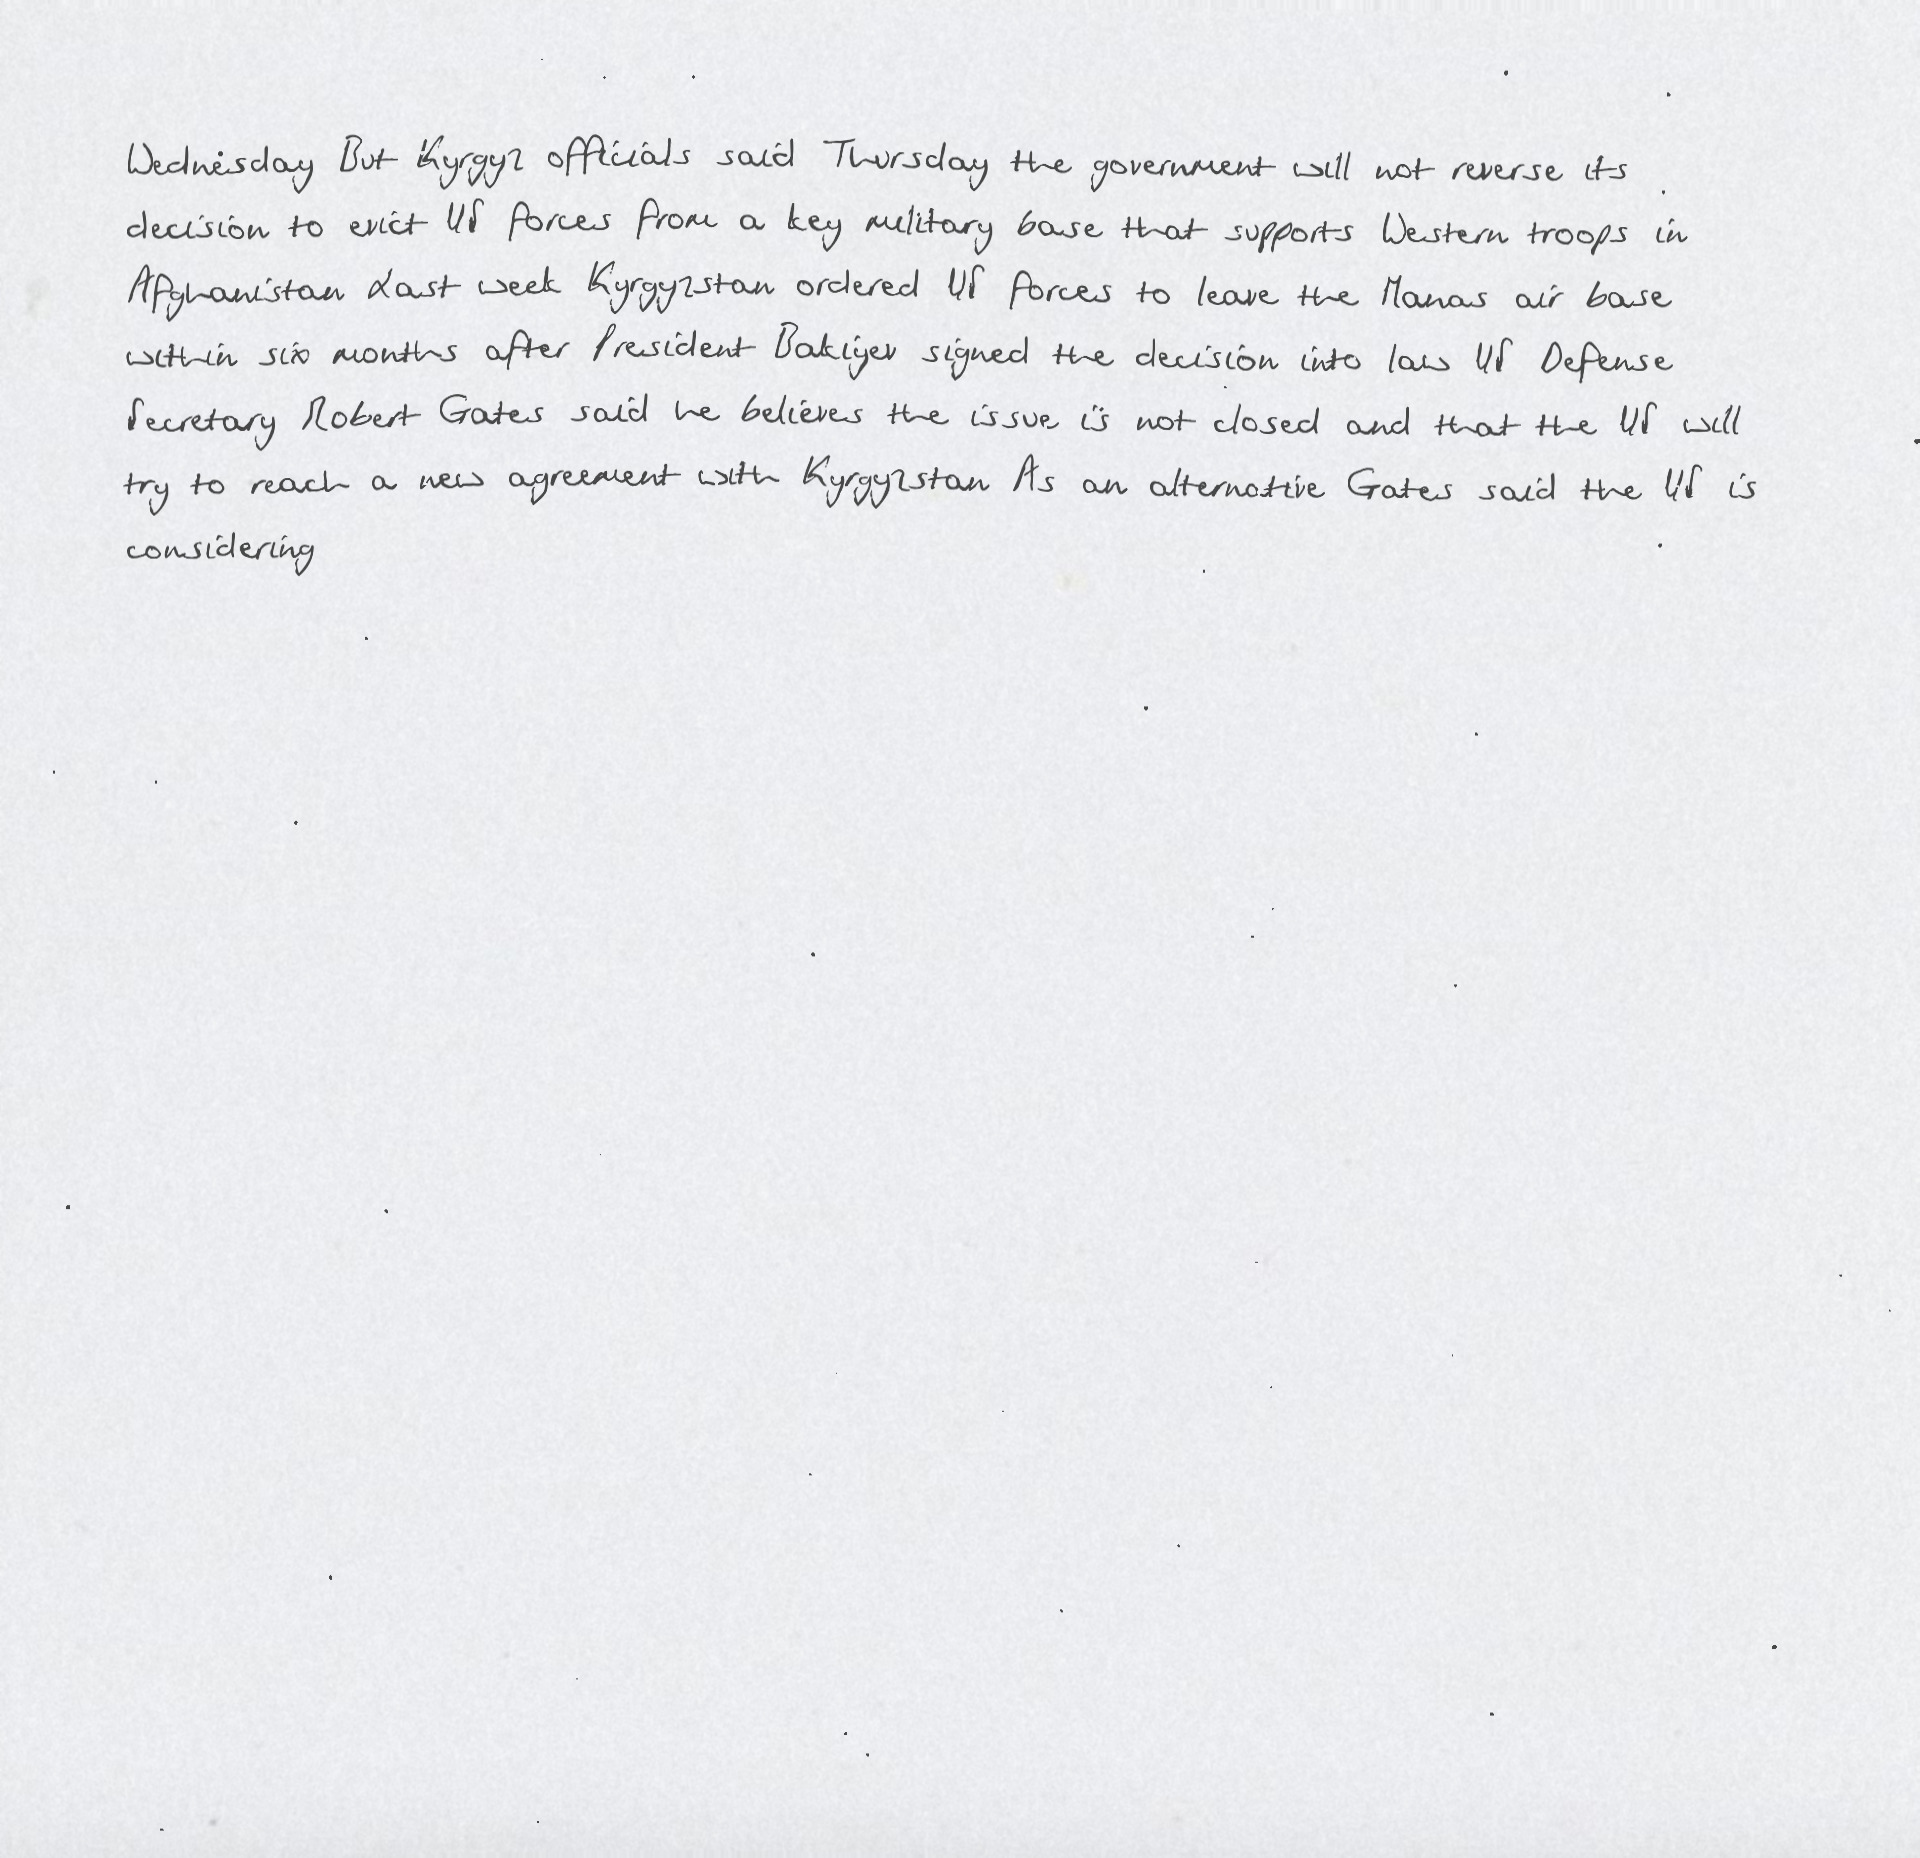 Wednesday But Kyrgyz officials said Thursday the government will not reverse its
decision to evict US forces from a key military base that supports Western troops in
Afghanistan Last week Kyrgyzstan ordered US forces to leave the Manas air base
within six months after President Bakiyev signed the decision into law US Defense
Secretary Robert Gates said he believes the issue is not closed and that the US will
try to reach a new agreement with Kyrgyzstan As an alternative Gates said the US is
considering